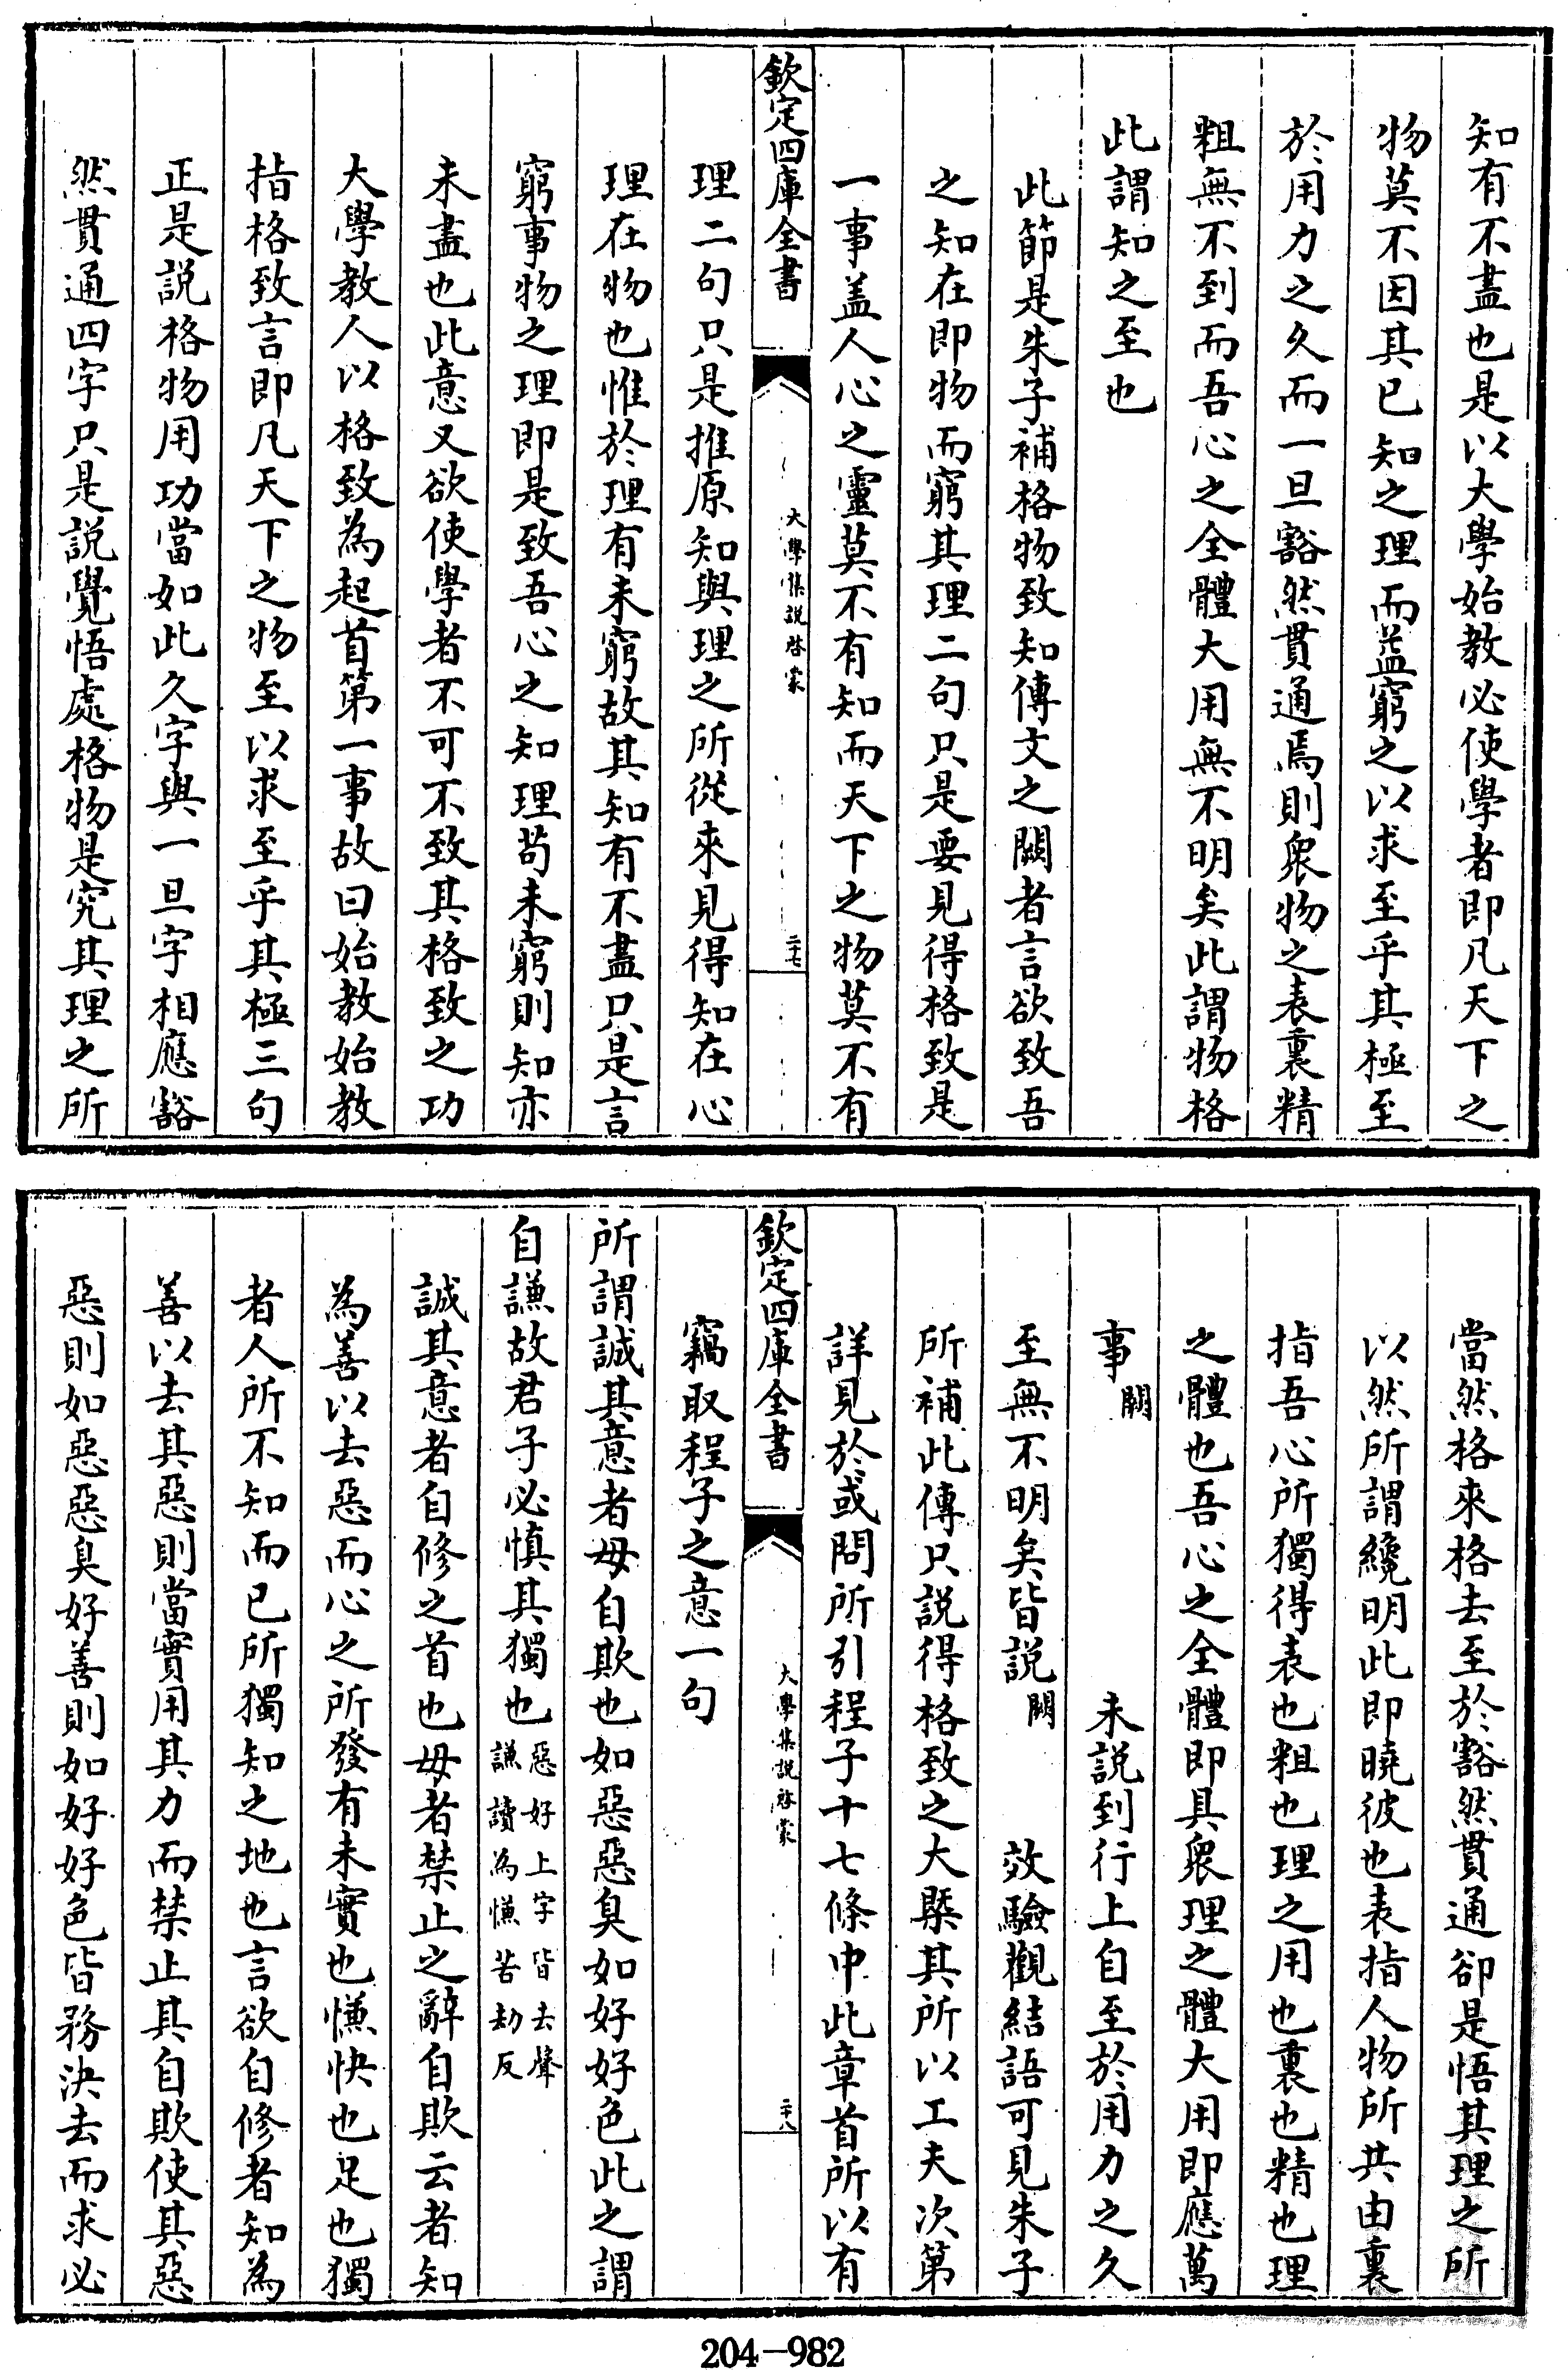 知有不盡也是以大學始教必使學者即凡天下之
物莫不因其已知之理而益窮之以求至乎其極至
於用力之久而一旦豁然貫通焉則衆物之表裏精
粗無不到而吾心之全體大用無不明矣此謂物格
此謂知之至也
此節是朱子補格物致知傳文之闕者言欲致吾
之知在即物而窮其理二句只是要見得格致是
一事盖人心之靈莫不有知而天下之物莫不有
欽定四庫全書
大學集說啓蒙
二十七
理二句只是推原知與理之所從來見得知在心
理在物也惟於理有未窮故其知有不盡只是言
窮事物之理即是致吾心之知理苟未窮則知亦
未盡也此意又欲使學者不可不致其格致之功
大學教人以格致為起首第一事故曰始教始教
指格致言即凡天下之物至以求至乎其極三句
正是說格物用功當如此久字與一旦字相應豁
然貫通四字只是說覺悟處格物是究其理之所
當然格來格去至於豁然貫通卻是悟其理之所
以然所謂纔明此即曉彼也表指人物所共由裏
指吾心所獨得表也粗也理之用也裏也精也理
之體也吾心之全體即具衆理之體大用即應萬
事闕未說到行上自至於用力之久
至無不明矣皆說闕效驗觀結語可見朱子
所補此傳只說得格致之大槩其所以工夫次第
詳見於或問所引程子十七條中此章首所以有
欽定四庫全書
大學集說啓蒙
二十八
竊取程子之意一句
所謂誠其意者毋自欺也如惡惡臭如好好色此之謂
自謙故君子必慎其獨也惡好上字皆去聲謙讀為慊苦劫反
誠其意者自修之首也毋者禁止之辭自欺云者知
為善以去惡而心之所發有未實也慊快也足也獨
者人所不知而已所獨知之地也言欲自修者知為
善以去其惡則當實用其力而禁止其自欺使其惡
惡則如惡惡臭好善則如好好色皆務決去而求必
204-982